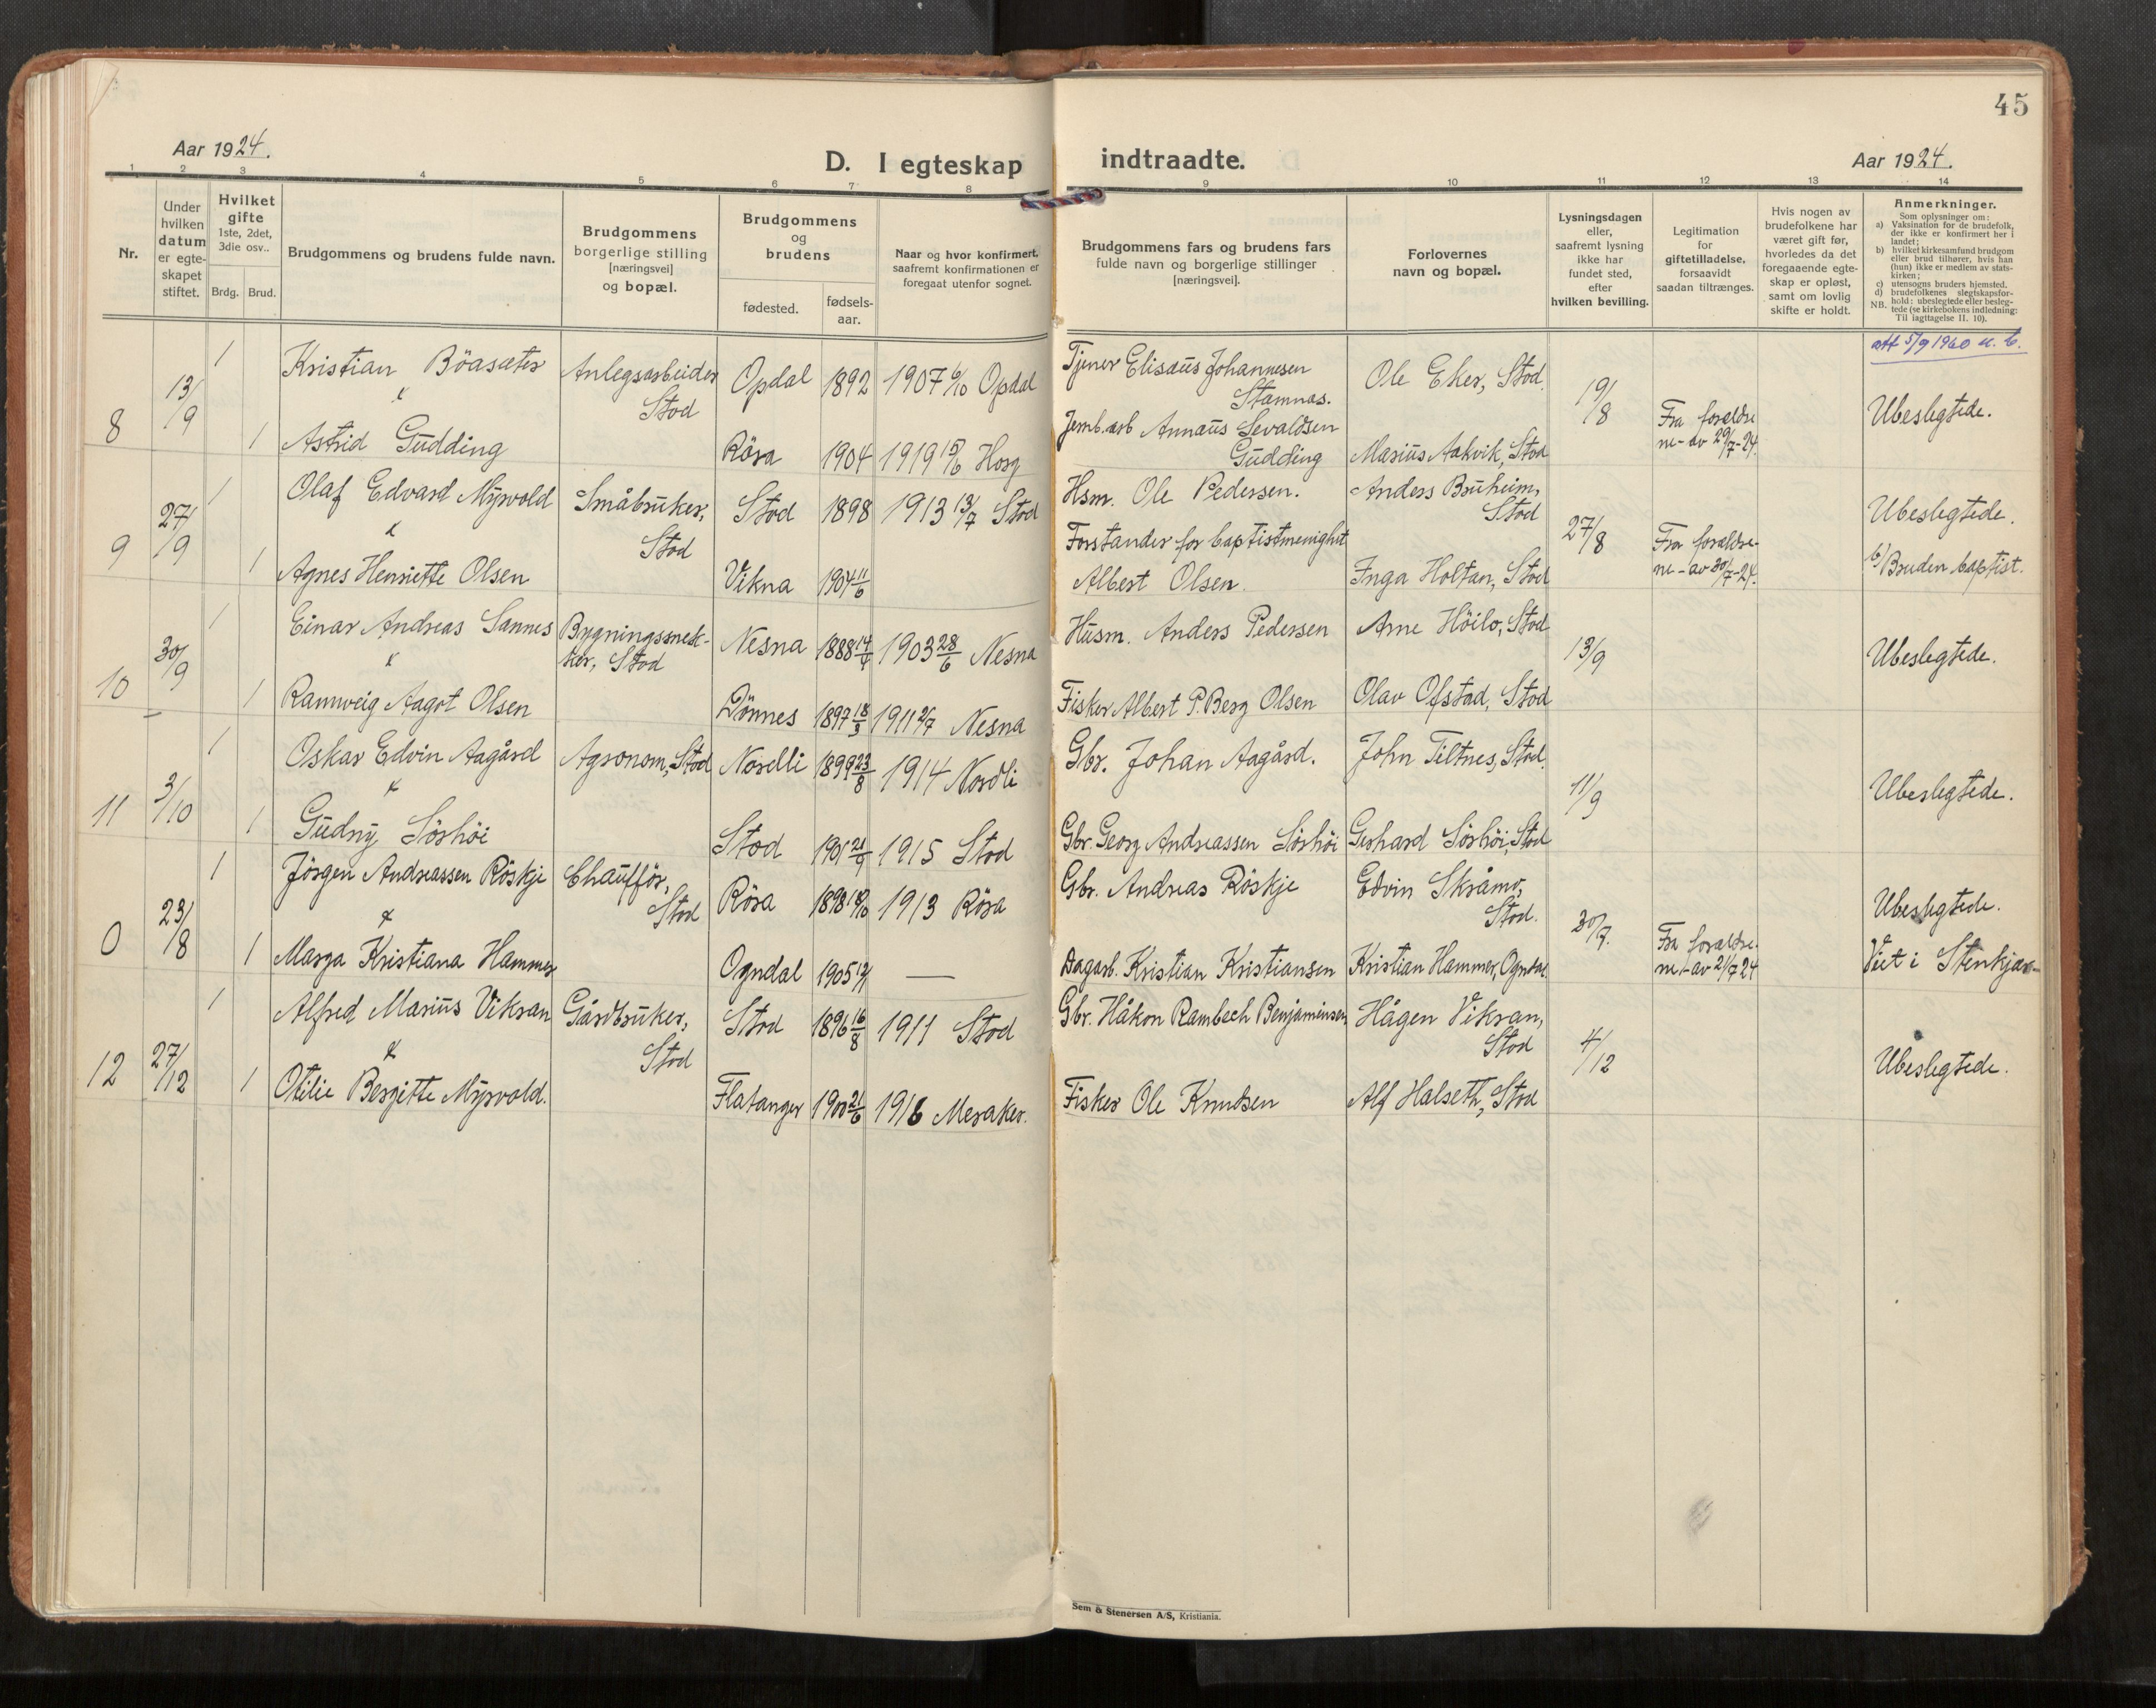 45
Aar 1924.
D. I egteskap indtraadte.
Aar 1924.
1 2 3 4 5 6 7 8 9 10 11 12 13 14
Nr.
Under
hvilken
datum
er egte-
skapet
stiftet.
Hvilket
gifte
1ste, 2det,
3die osv..
Brdg. Brud.
Brudgommens og brudens fulde navn.
Brudgommens
borgerlige stilling
[næringsvei]
og bopæl.
Brudgommens
og
brudens
fødested.
fødsels-
aar.
Naar og hvor konfirmert,
saafremt konfirmationen er
foregaat utenfor sognet.
Brudgommens fars og brudens fars
fulde navn og borgerlige stillinger
[næringsvei].
Forlovernes
navn og bopæl.
Lysningsdagen
eller,
saafremt lysning
ikke har
fundet sted,
efter
hvilken bevilling.
Legitimation
for
giftetilladelse,
forsaavidt
saadan tiltrænges.
Hvis nogen av
brudefolkene har
været gift før,
hvorledes da det
foregaaende egte-
skap er opløst,
samt om lovlig
skifte er holdt.
Anmerkninger.
Som oplysninger om:
a) Vaksination for de brudefolk,
der ikke er konfirmert her i
landet;
b) hvilket kirkesamfund brudgom
eller brud tilhører, hvis han
(hun) ikke er medlem av stats-
kirken;
c) utensogns bruders hjemsted.
d) brudefolkenes slegtskapsfor-
hold: ubeslegtede eller besleg-
tede (se kirkebokens indledning:
NB. Til iagttagelse II. 10).
att 5/9 1960 u. b.
8 13/9
1 Kristian Böasæter Anlegsarbeider Opdal 1892 1907 Opdal Tjener Elisæus Johannesen Ole Eker, Stod.
& Stod Stamnas. 19/8 Ubeslegtede.
1 Astrid Gudding Röra 1904 1919 Hosg Jernb.arb Annæus Sevaldsen Fra forældre
Gudding Marius Aakvik, Stod ne - av 29/7-24.
9 27/9
1 Olaf Edvard Myrvold Småbruker, Stod 1898 1913 13/7 Stod Hsm. Ole Pedersen. Anders Bruheim,
Stod Ubeslegtede.
& Stod Forstander for baptistmenighet 27/8 Fra forældre-
1 Agnes Henriette Olsen Vikna 1904 11/6 Albert Olsen. Inga Holtan, Stod ne - av 30/7-24. b) Bruden baptist.
10 30/9
1 Einar Andreas Sannes Bygningssnek- Nesna 1888 14/4 1903 28/6 Nesna Husm. Anders Pedersen Arne Höilo, Stod
& ker, Stod 13/9 Ubeslegtede.
1 Ramveig Aagot Olsen Dönnes 1897 18/3 1911 2/7 Nesna Fisker Albert P. Berg Olsen Olav Ofstad, Stod
11 3/10
1 Oskar Edvin Aagård Agronom, Stod Nordli 1899 23/8 1914 Nordli Gbr. Johan Aagård. John Tiltnes, Stod.
& 11/9 Ubeslegtede.
1 Gudny Sörhöi Stod 1901 21/9 1915 Stod Gbr. Georg Andreassen Sörhöi Gerhard Sörhöi, Stod
0 23/8
1 Jörgen Andreassen Röskje Chaufför, Röra 1898 1913 Röra Gbr. Andreas Röskje Edvin Skråmo,
& Stod Stod. 30/7. Ubeslegtede.
1 Marga Kristiana Hammer Ogndal 1905 — Dagarb. Kristian Kristiansen Kristian Hammer, Ogndal Fra forældre- Viet i Stenkjær
ne - av 21/7 24
12 27/12
1 Alfred Marius Vikran Gårdbruker, Stod 1896 16/8 1911 Stod Gbr. Håkon Rambech Benjaminsen Hågen Vikran,
& Stod Stod 4/12 Ubeslegtede.
1 Otilie Bergitte Myrvold. Flatanger 1900 21/6 1916 Meraker. Fisker Ole Knudsen Alf Halseth, Stod
Sem & Stenersen A/S, Kristiania.